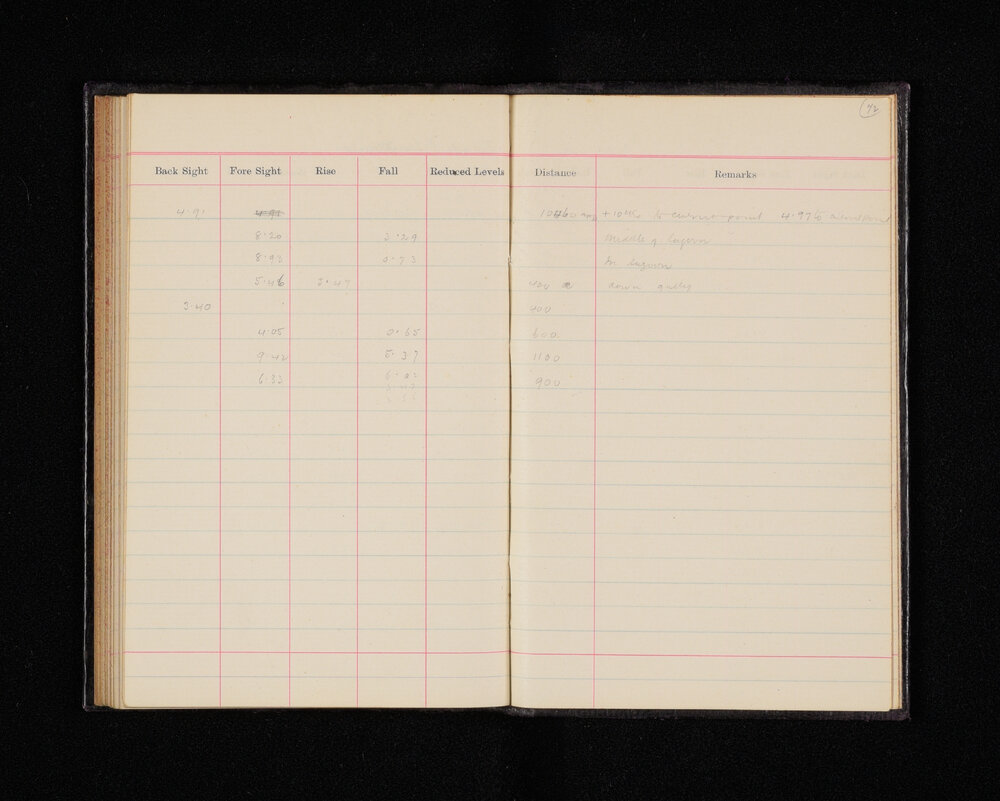 42
Back Sight Fore Sight Rise Fall Reduced Levels Distance Remarks
4.91 4.91 to 4.97
8.20 3.29 middle of lagoon
8.93 0.73 lagoon
5.46 3.47 400 down gully
3.40 400
4.05 0.65 600
9.42 5.37 1100
6.33 6.02 900